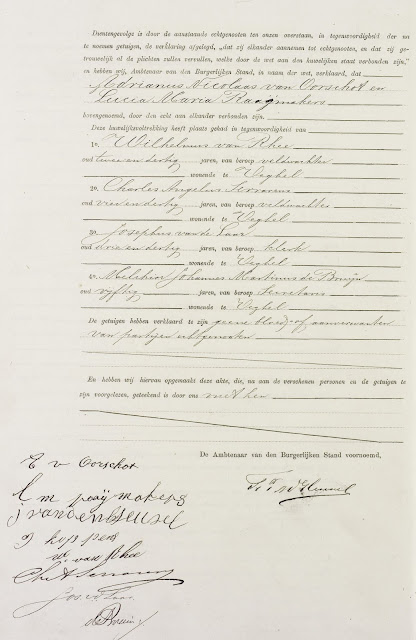 Dientengevolge is door de aanstaande echtgenooten ten onzen overstaan, in tegenwoordigheid der na
te noemen getuigen, de verklaring afgelegd, „dat zij elkander aannemen tot echtgenooten, en dat zij ge-
trouwelijk al de plichten zullen vervullen, welke door de wet aan den huwelijken staat verbonden zijn,"
en hebben wij, Ambtenaar van den Burgerlijken Stand, in naam der wet, verklaard, dat
Marianus Nicolaas van Oorschot en
Lucia Maria Raaijmakers
bovengenoemd, door den echt aan elkander verbonden zijn.
Deze huwelijksvoltrekking heeft plaats gehad in tegenwoordigheid van
1o. Wilhelmus van Rhee
oud twee en dertig jaren, van beroep veldwachter
wonende te Veghel
2o. Charles Angelus Serrarens
oud vier en dertig jaren, van beroep veldwachter
wonende te Veghel
3o. Josephus van de Laar
oud drie en dertig jaren, van beroep klerk
wonende te Veghel
4o. Melchior Johannes Martinus de Bruijn
oud vijftig jaren, van beroep Secretaris
wonende te Veghel
De getuigen hebben verklaard te zijn geene bloed- of aanverwanten
van partijen echtgenooten
En hebben wij hiervan opgemaakt deze akte, die, na aan de verschenen personen en de getuigen te
zijn voorgelezen, geteekend is door ons met hen
De Ambtenaar van den Burgerlijken Stand voornoemd,
v Oorschot
l m raaijmakers
j vandenheuvel
W. van Rhee
Ch A Serrarens
Jos. v d Laar
de Bruijn